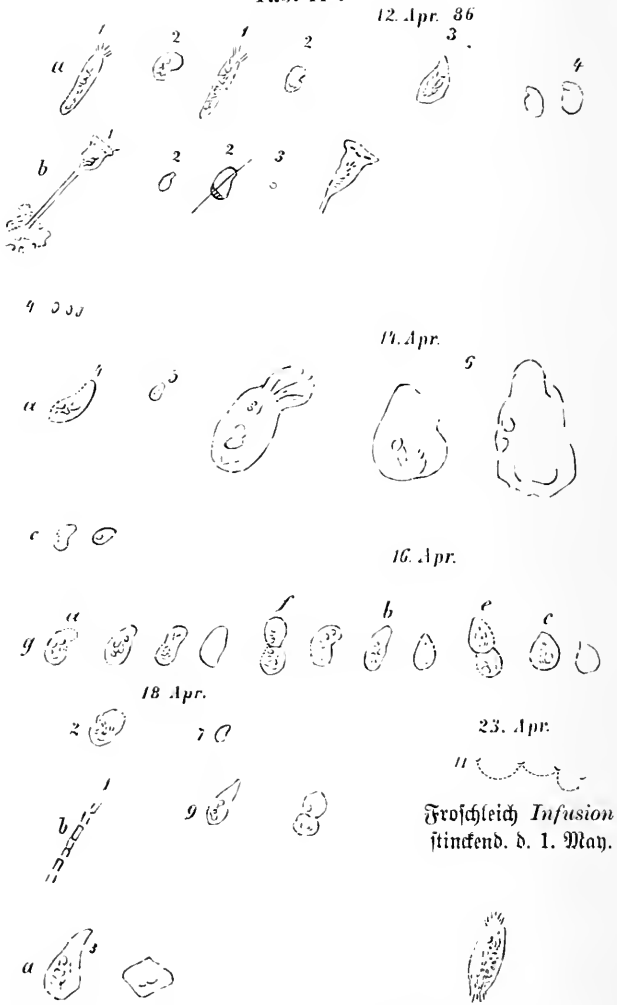 12. Apr. 86
1 2 1 2 3 4
a
1 2 2 3
b
4
14. Apr.
a
c
16. Apr.
a f b e c
g
18 Apr.
2 7
23. Apr.
11
1
b
9
Froschleich Infusion
stinckend. d. 1. May.
a 3